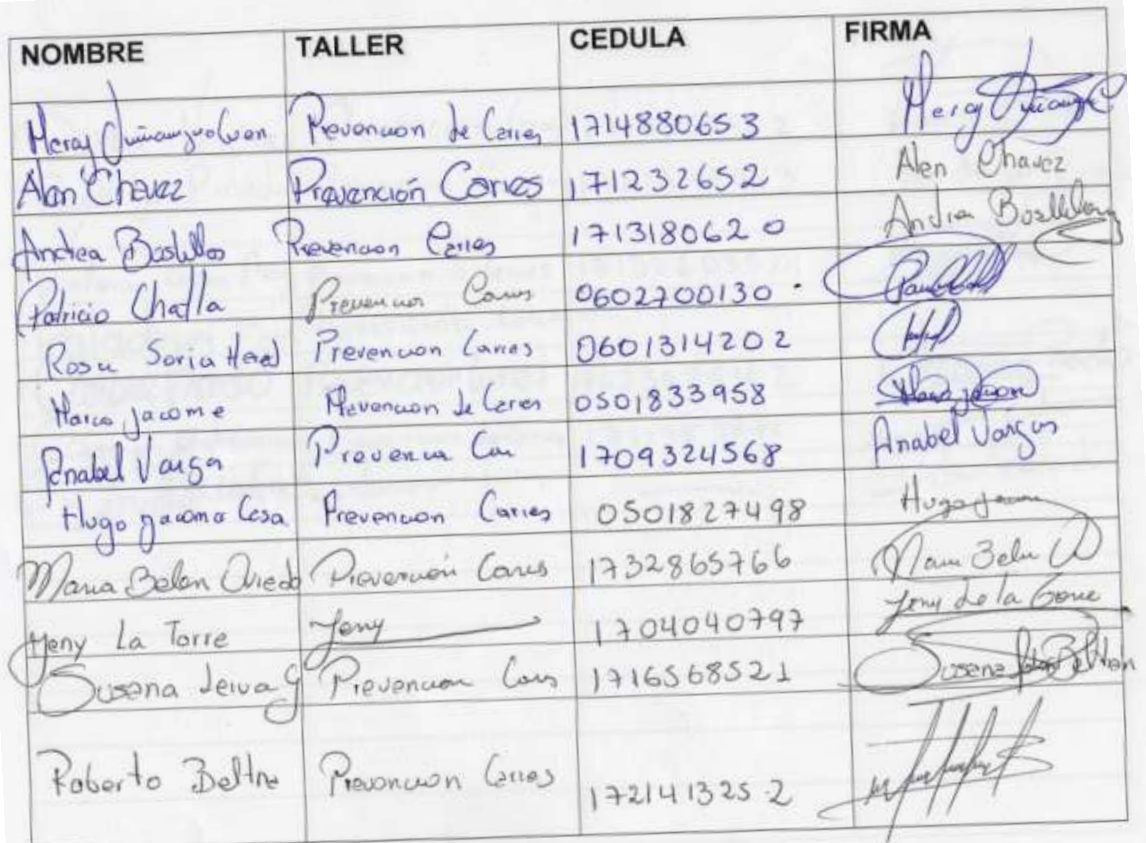 NOMBRE TALLER CEDULA FIRMA
Mercy Prevencion de Caries 1714880653 Mercy
Alan Chavez Prevención Caries 171232652 Alen Chavez
Andrea Bastillos Prevencion Caries 1713180620 Andrea
Patricio Challa Prevencion Caries 0602700130
Rosa Soria Prevencion Caries 0601314202
Marco Jacome Prevencion de Caries 0501833958 Marco Jacome
Anabel Varga Prevencia Car 1709324568 Anabel Vargas
Hugo Jacome Casa Prevencion Caries 0501827498 Hugo Jacome
Maria Belen Oviedo Prevención Caries 1732865766 Maria Belen O
Yeny La Torre Yeny 1704040797 Yeny de la Torre
Susana Leiva G Prevencion Caries 1716568521 Susana Beltran
Roberto Beltra Prevencion Caries 172141325-2